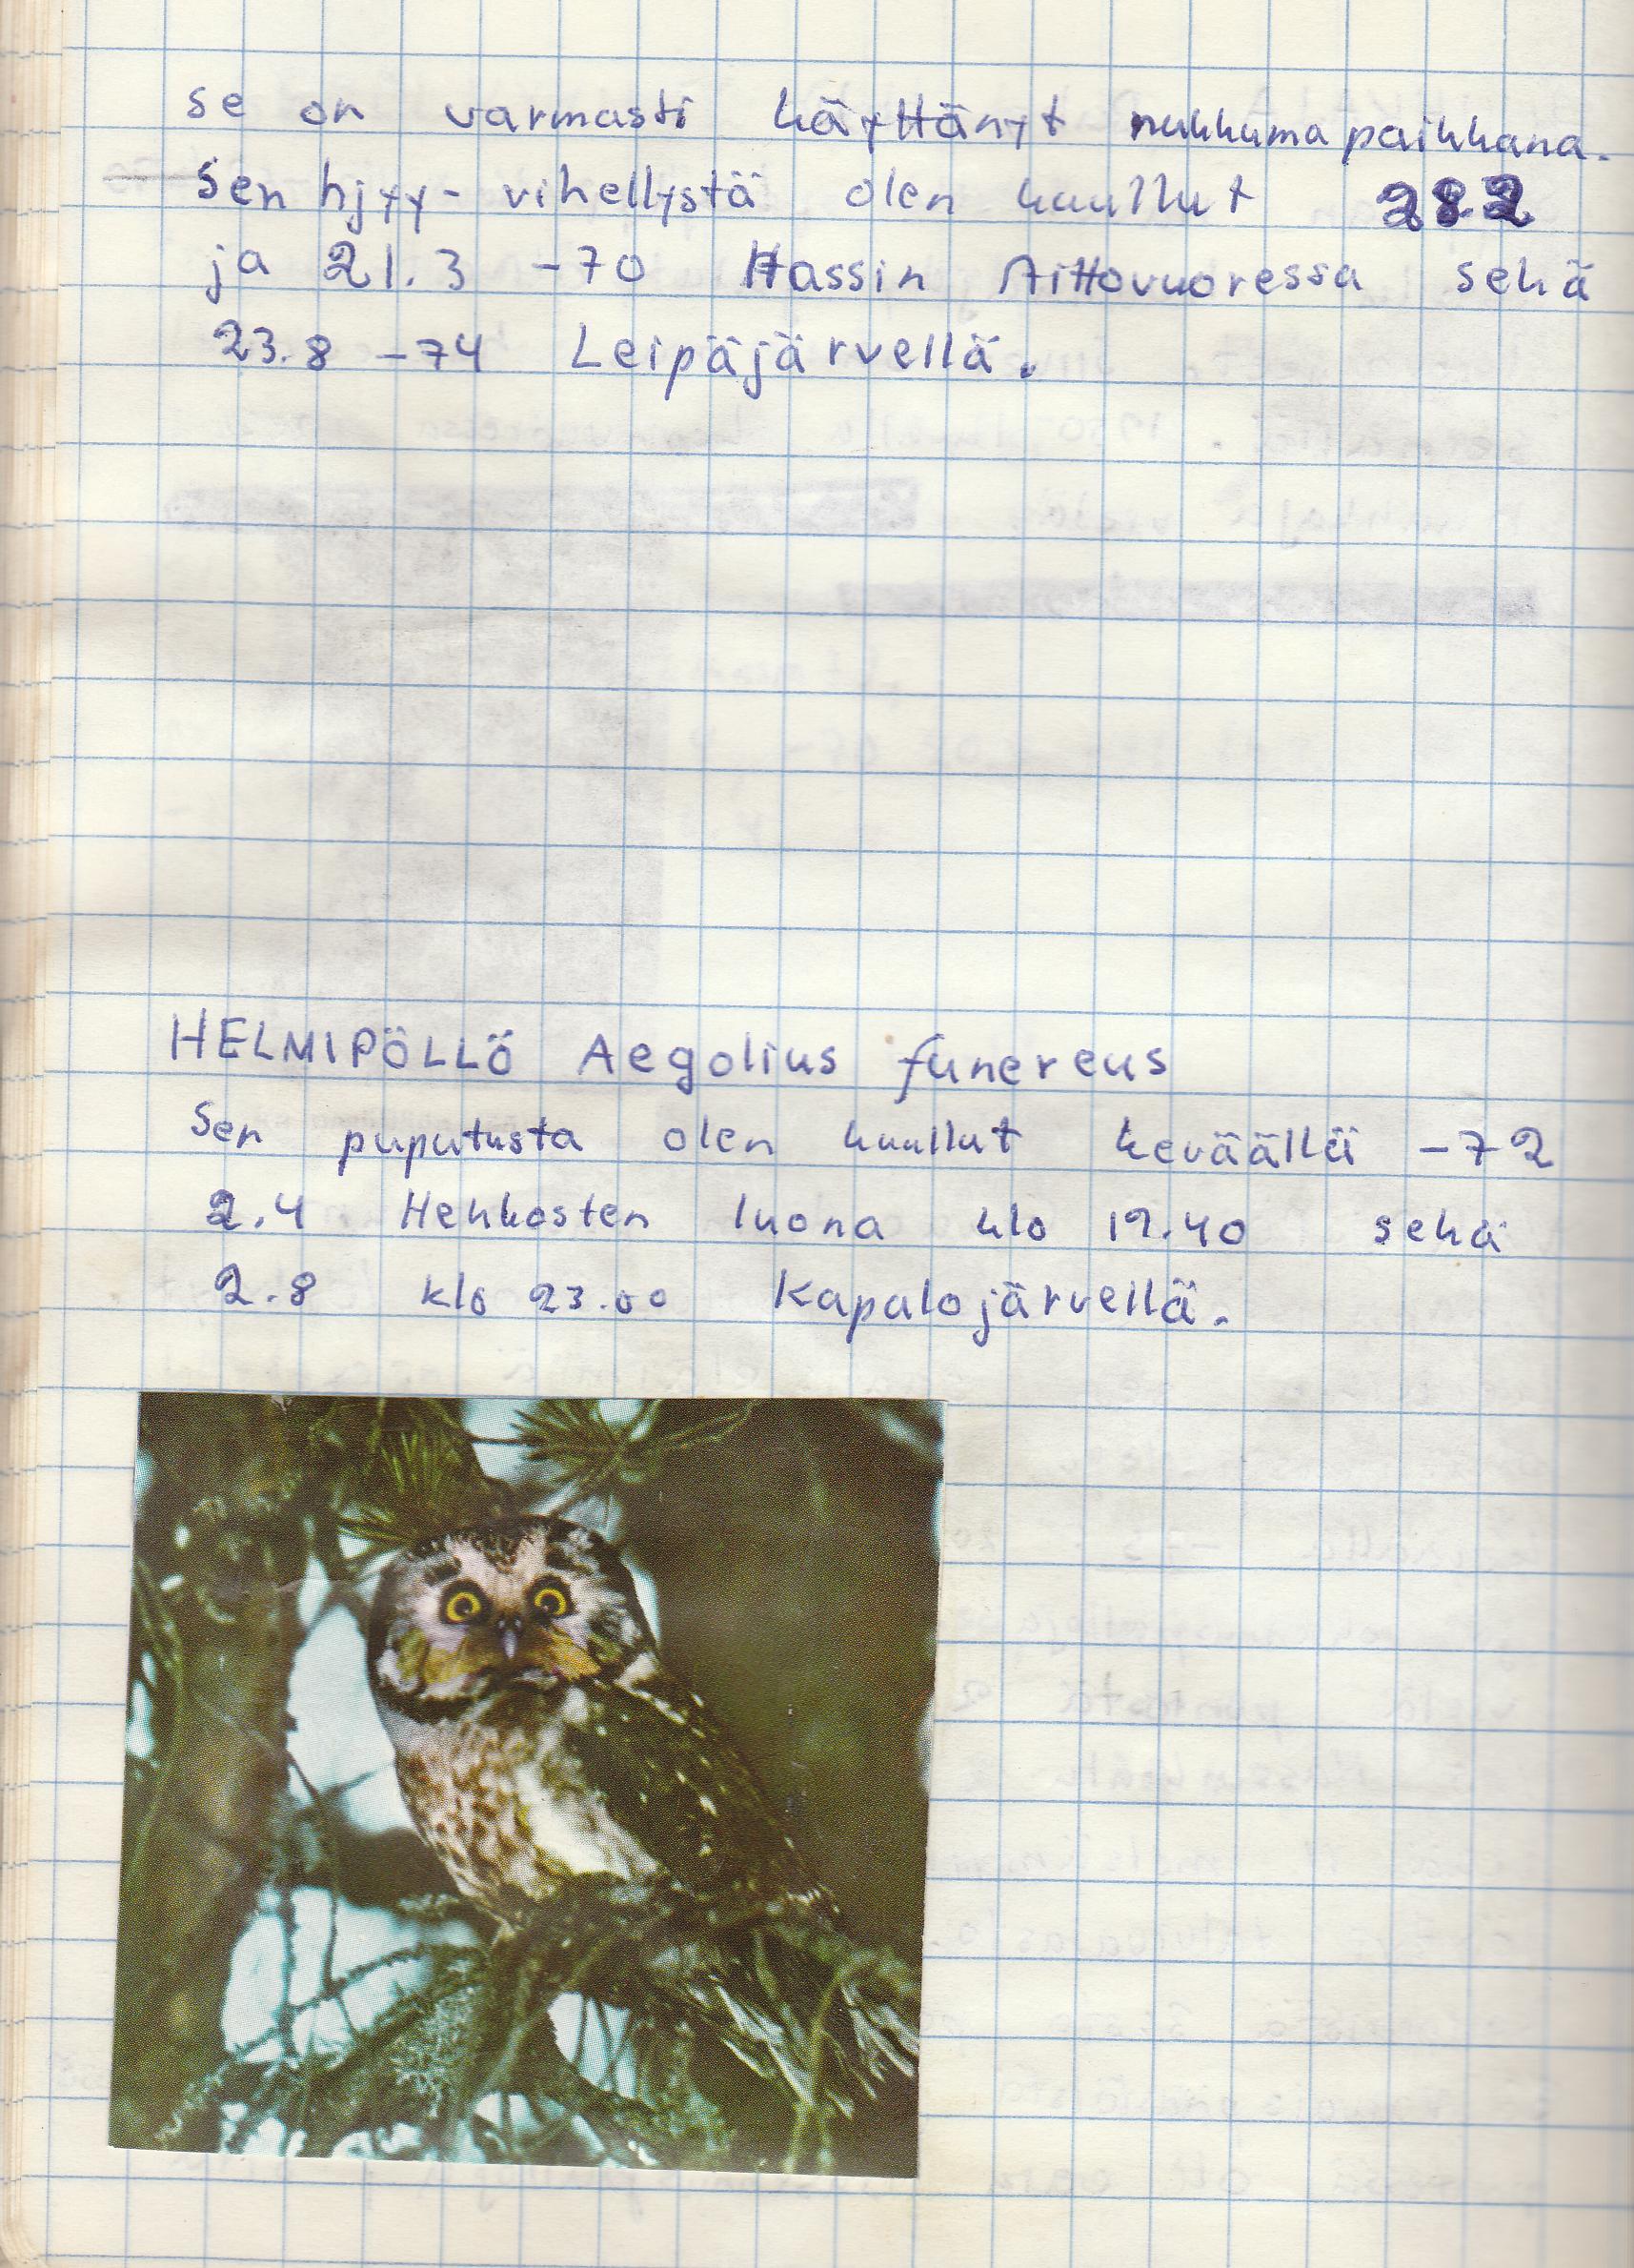 se on varmasti käyttänyt nukkumapaikkana.
Sen hjyy- vihellystä olen kuullut 28.2
ja 21.3 -70 Hassin Aittovuoressa sekä
23.8 -74 Leipäjärvellä.
HELMIPÖLLÖ Aegolius funereus
Sen puputusta olen kuullut keväällä -72
2.4 Hehkosten luona klo 19.40 sekä
2.8 klo 23.00 Kapalojärvellä.